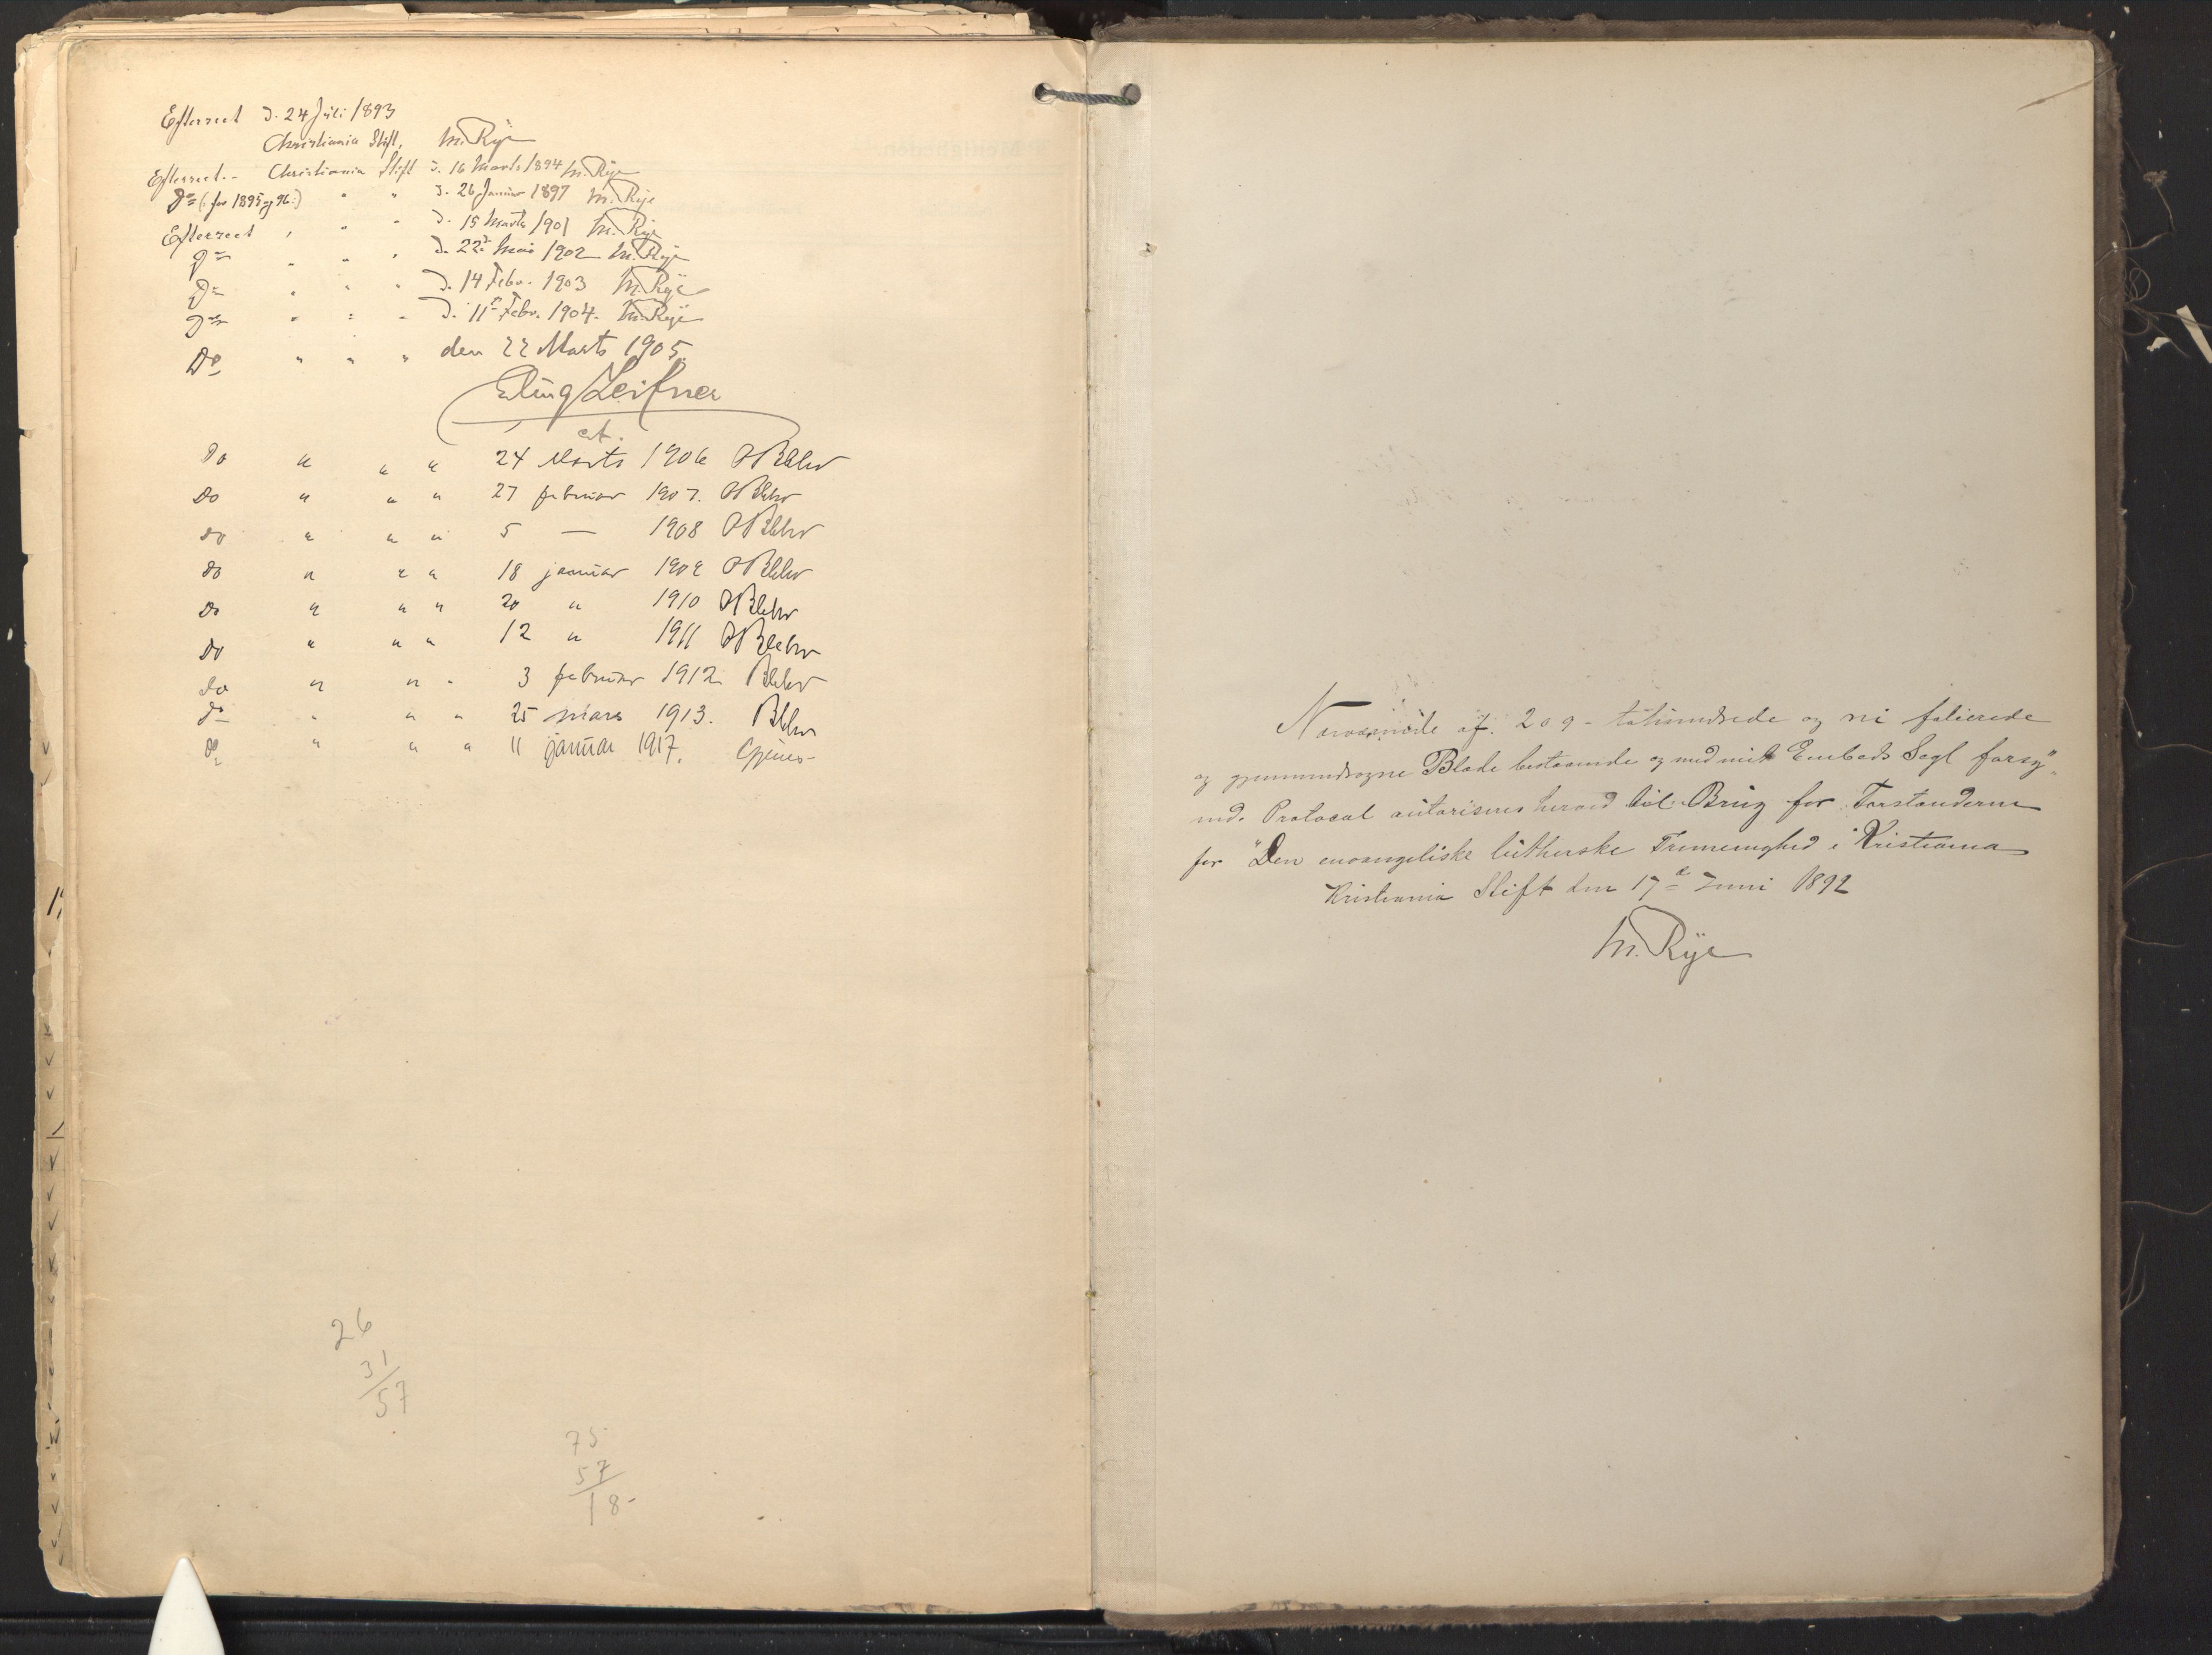 Efterseet d. 24 Juli 1893
Christiania Stift, M. Rye
Efterseet.- Christiania Stift d. 16 Marts 1894 M. Rye
Do (: for 1895 og 96 :) " " d. 26 Januar 1897 M. Rye
Efterseet " " " d. 15 Marts 1901 M. Rye
Do " " " d. 22de Mai 1902 M. Rye
Do " " " d. 14 Febr. 1903 M. Rye
Do " " " d. 11te Febr. 1904. M. Rye
Do " " " den 22 Marts 1905.
cst.
Do " " " 24 Marts 1906
Do " " " 27 februar 1907.
do " " " 5 — 1908
do " " " 18 januar 1909
Do " " " 20 " 1910
Do " " " 12 " 1911
do " " " 3 februar 1912
do " " " 25 mars 1913.
Do " " " 11 januar 1917.
26
31
57
75
57
18
Nærværende af 209 - tohundrede og ni folierede
og gjennemdragne Blade bestaaende og med mit Embeds Segl forsy"
ned. Protocol autoriseres herved til Brug for Forstanderne
for "Den evangeliske lutherske Frimenighed i Kristiania
Kristiania Stift den 17de Juni 1892
M. Rye